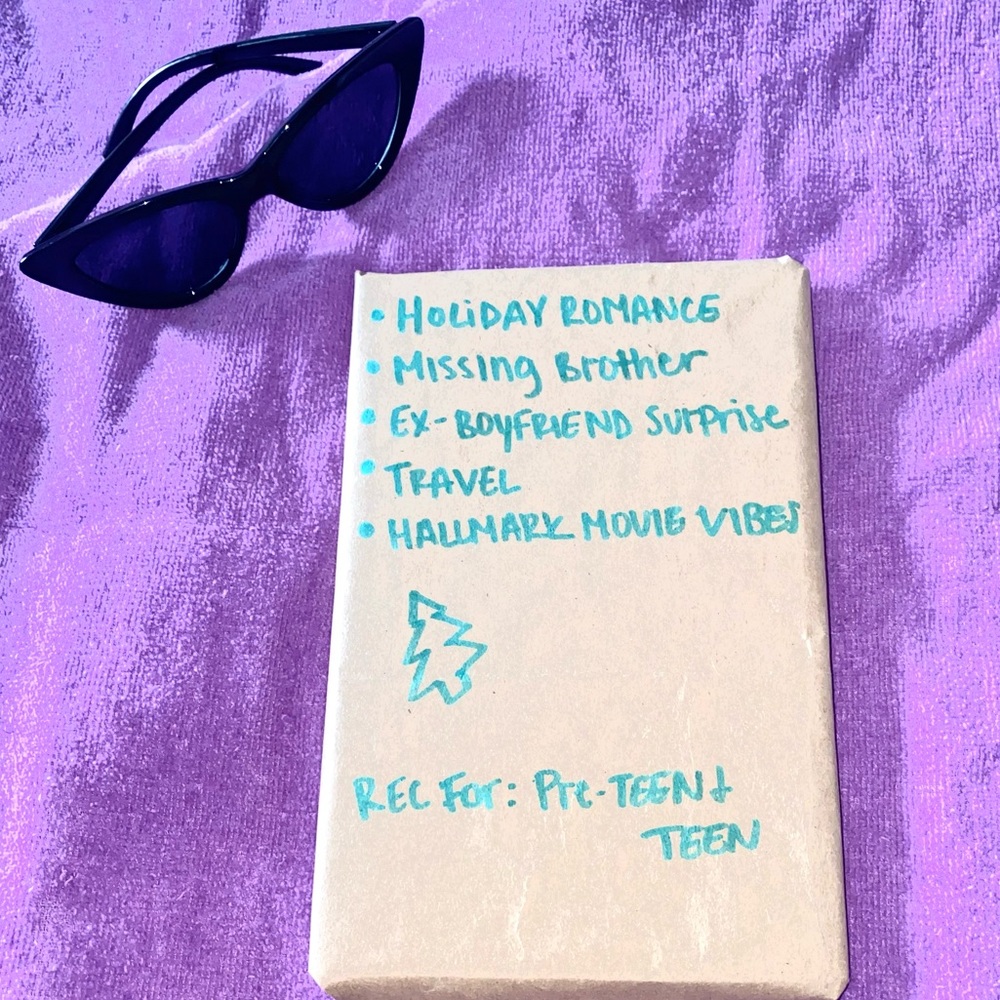 • HOLIDAY ROMANCE
• Missing Brother
• EX-BOYFRIEND Surprise
• TRAVEL
• HALLMARK MOVIE VIBES
REC For: Pre-TEEN +
TEEN